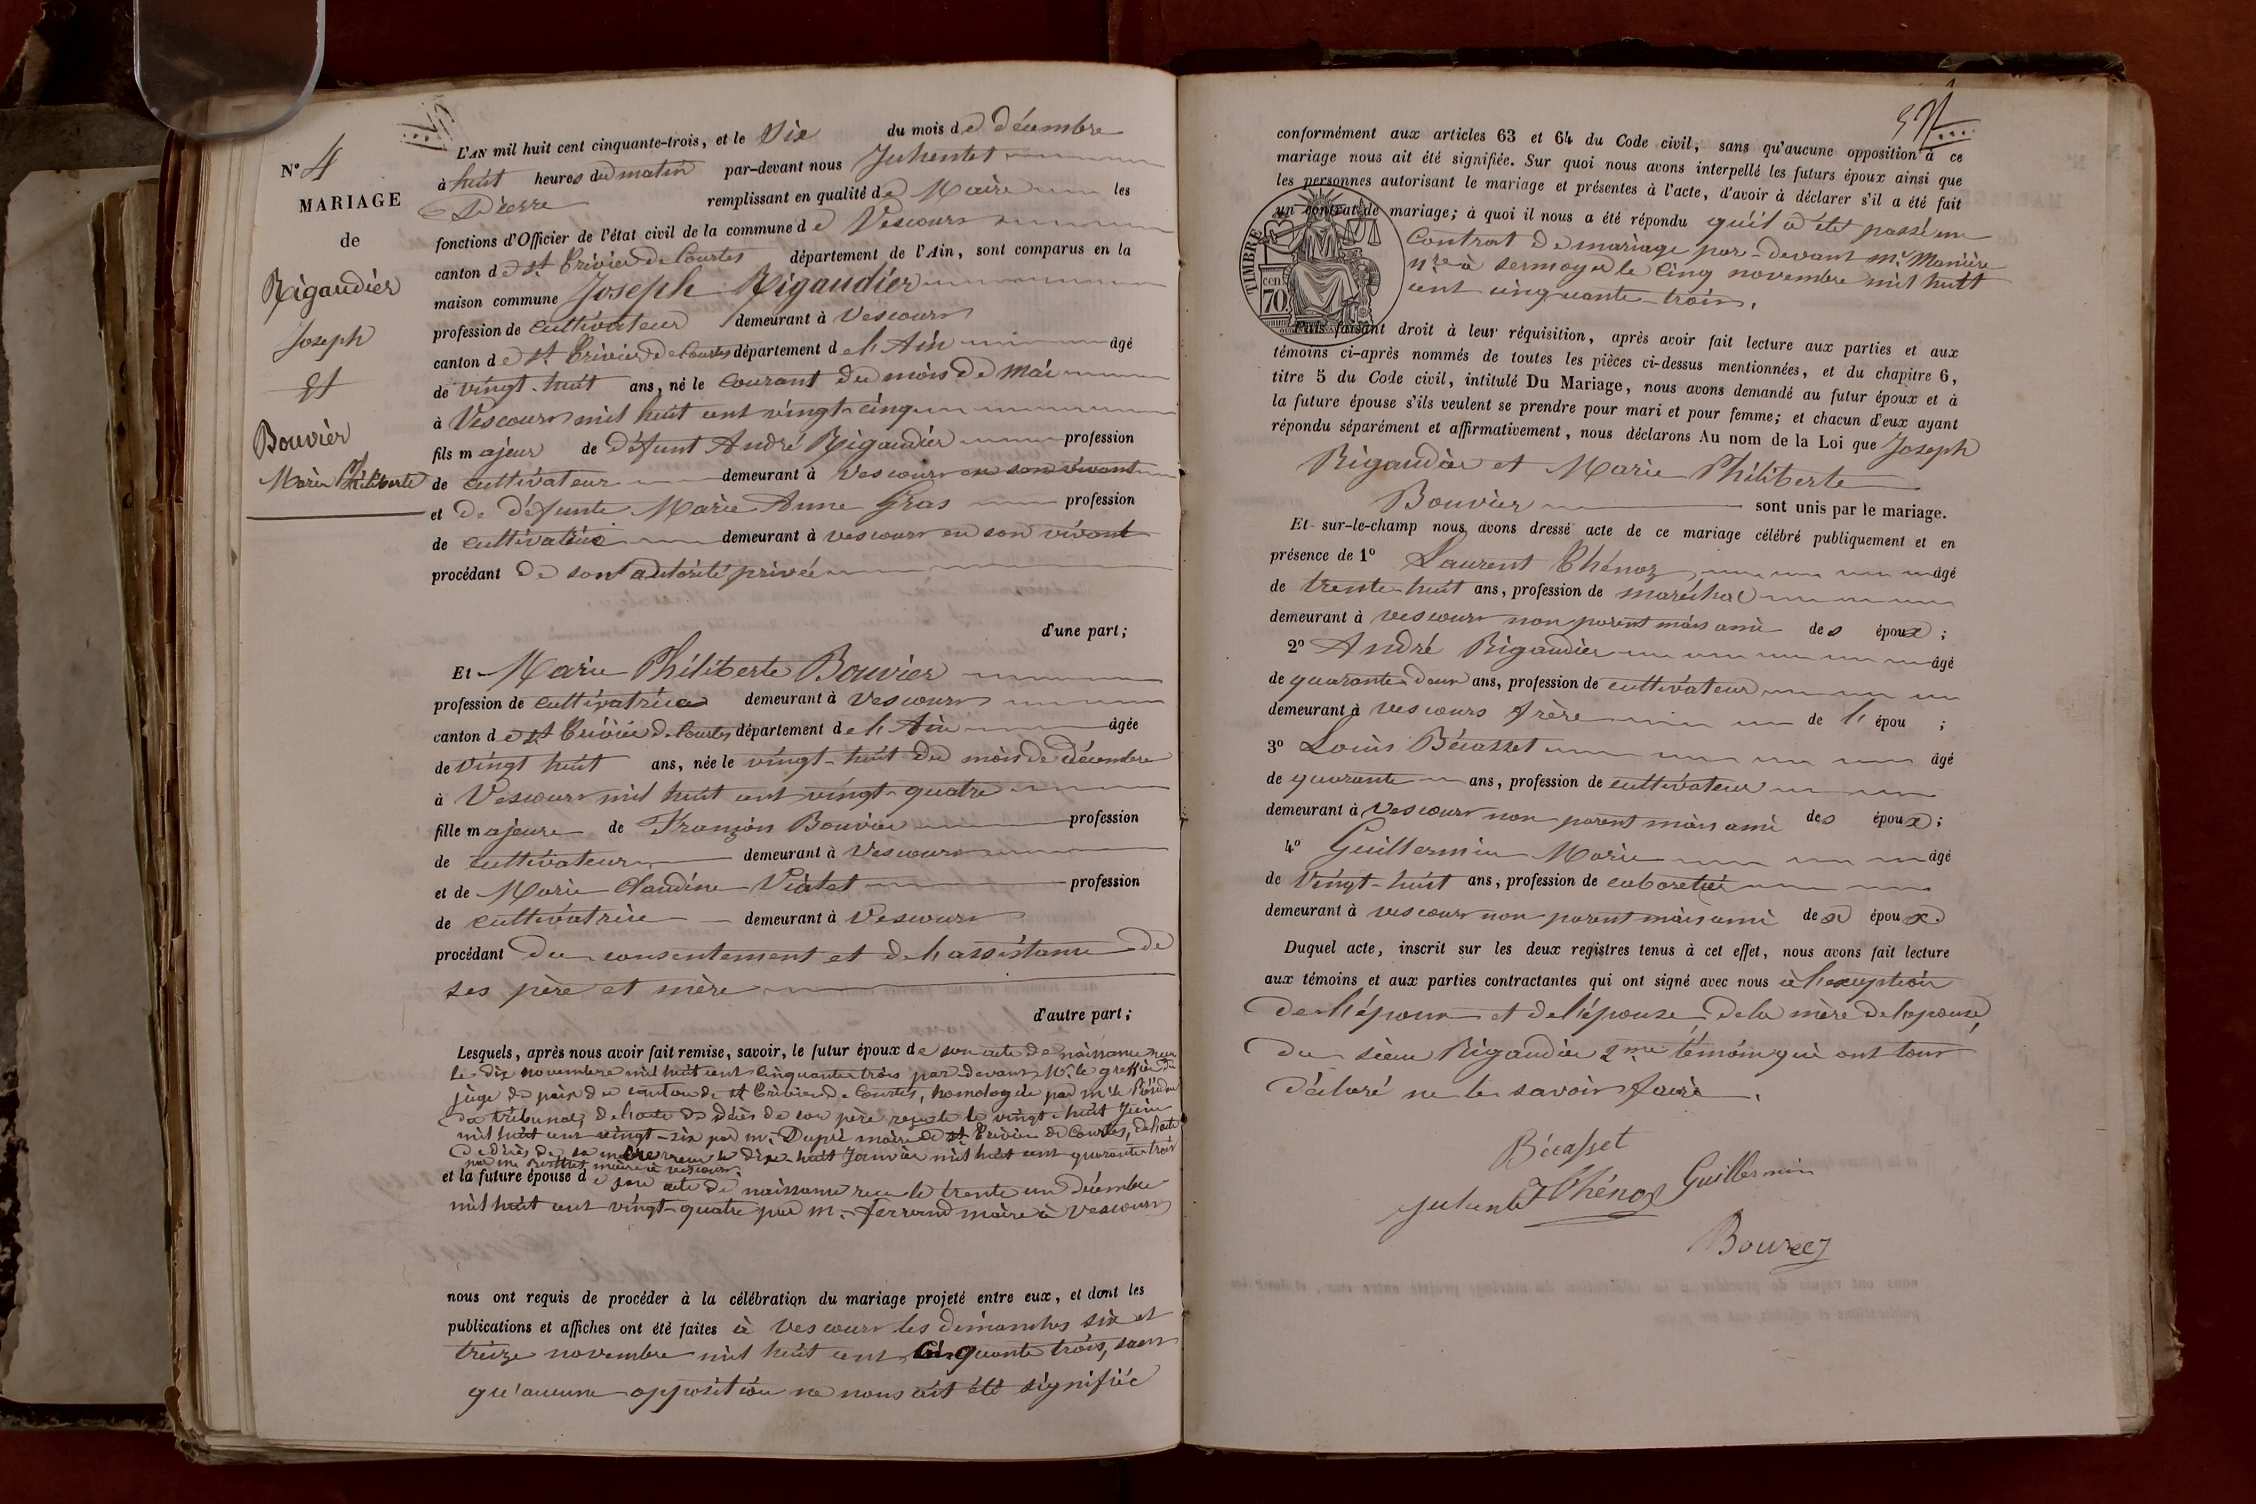 N° 4
MARIAGE
de
Rigaudier
Joseph
Et
Bouvier
Marie Philiberte
L'AN mil huit cent cinquante-trois, et le Dix du mois de décembre
à huit heures du matin par-devant nous Juhentet
Pierre remplissant en qualité de Maire les
fonctions d'Officier de l'état civil de la commune de Vescours
canton de St Trivier de Courtes département de l'Ain, sont comparus en la
maison commune Joseph Rigaudier
profession de cultivateur demeurant à Vescours
canton de St Trivier de Courtes département de l'Ain âgé
de vingt-huit ans, né le courant du mois de Mai
à Vescours mil huit cent vingt-cinq
fils majeur de défunt André Rigaudier profession
de cultivateur demeurant à Vescours en son vivant
et de défunte Marie Anne Gras profession
de cultivatrice demeurant à Vescours en son vivant
procédant de son autorité privée
d'une part;
Et Marie Philiberte Bouvier
profession de cultivatrice demeurant à Vescours
canton de St Trivier de Courtes département de l'Ain âgée
de vingt huit ans, née le vingt-huit du mois de décembre
à Vescours mil huit cent vingt-quatre
fille majeure de François Bouvier profession
de cultivateur demeurant à Vescours
et de Marie Claudine Vialet profession
de cultivatrice demeurant à Vescours
procédant du consentement et de l'assistance de
ses père et mère
d'autre part;
Lesquels, après nous avoir fait remise, savoir, le futur époux de son acte de naissance reçu
le dix novembre mil huit cent cinquante trois par devant Mr le greffier du
juge de paix du canton de St Trivier de Courtes, homologué par Mr le Président
du tribunal, de l'acte de décès de son père reçu le vingt-huit Juin
mil huit cent vingt-six par Mr Dupré maire de St Trivier de Courtes, de l'acte
de décès de sa mère reçu le dix-huit Janvier mil huit cent quarante trois
par Mr maire à Vescours
et la future épouse de son acte de naissance reçu le trente un décembre
mil huit cent vingt-quatre par Mr Ferrand maire à Vescours
nous ont requis de procéder à la célébration du mariage projeté entre eux, et dont les
publications et affiches ont été faites à Vescours les dimanches six et
treize novembre mil huit cent cinquante trois, sans
qu'aucune opposition ne nous ait été signifiée
conformément aux articles 63 et 64 du Code civil, sans qu'aucune opposition à ce
mariage nous ait été signifiée. Sur quoi nous avons interpellé les futurs époux ainsi que
les personnes autorisant le mariage et présentes à l'acte, d'avoir à déclarer s'il a été fait
un contrat de mariage; à quoi il nous a été répondu qu'il a été passé un
contrat de mariage par-devant Mr Manière
nre à Sermoyer le cinq novembre mil huit
cent cinquante-trois.
TIMBRE
70
cen
Puis faisant droit à leur réquisition, après avoir fait lecture aux parties et aux
témoins ci-après nommés de toutes les pièces ci-dessus mentionnées, et du chapitre 6,
titre 5 du Code civil, intitulé Du Mariage, nous avons demandé au futur époux et à
la future épouse s'ils veulent se prendre pour mari et pour femme; et chacun d'eux ayant
répondu séparément et affirmativement, nous déclarons Au nom de la Loi que Joseph
Rigaudier et Marie Philiberte
Bouvier sont unis par le mariage.
Et sur-le-champ nous avons dressé acte de ce mariage célébré publiquement et en
présence de 1° Laurent Thénoz âgé
de trente-huit ans, profession de maréchal
demeurant à Vescours non parent mais ami des époux;
2° André Rigaudier âgé
de quarante-deux ans, profession de cultivateur
demeurant à Vescours frère de l'épou ;
3° Louis Bécasset âgé
de quarante ans, profession de cultivateur
demeurant à Vescours non parent mais ami des époux;
4° Guillermin Marie âgé
de vingt-huit ans, profession de cabaretier
demeurant à Vescours non parent mais ami des époux.
Duquel acte, inscrit sur les deux registres tenus à cet effet, nous avons fait lecture
aux témoins et aux parties contractantes qui ont signé avec nous à l'exception
de l'époux et de l'épouse, de la mère de l'épouse,
du sieur Rigaudier 2me témoin qui ont tous
déclaré ne le savoir faire.
Bécasset
Juhentet Thénoz Guillermin